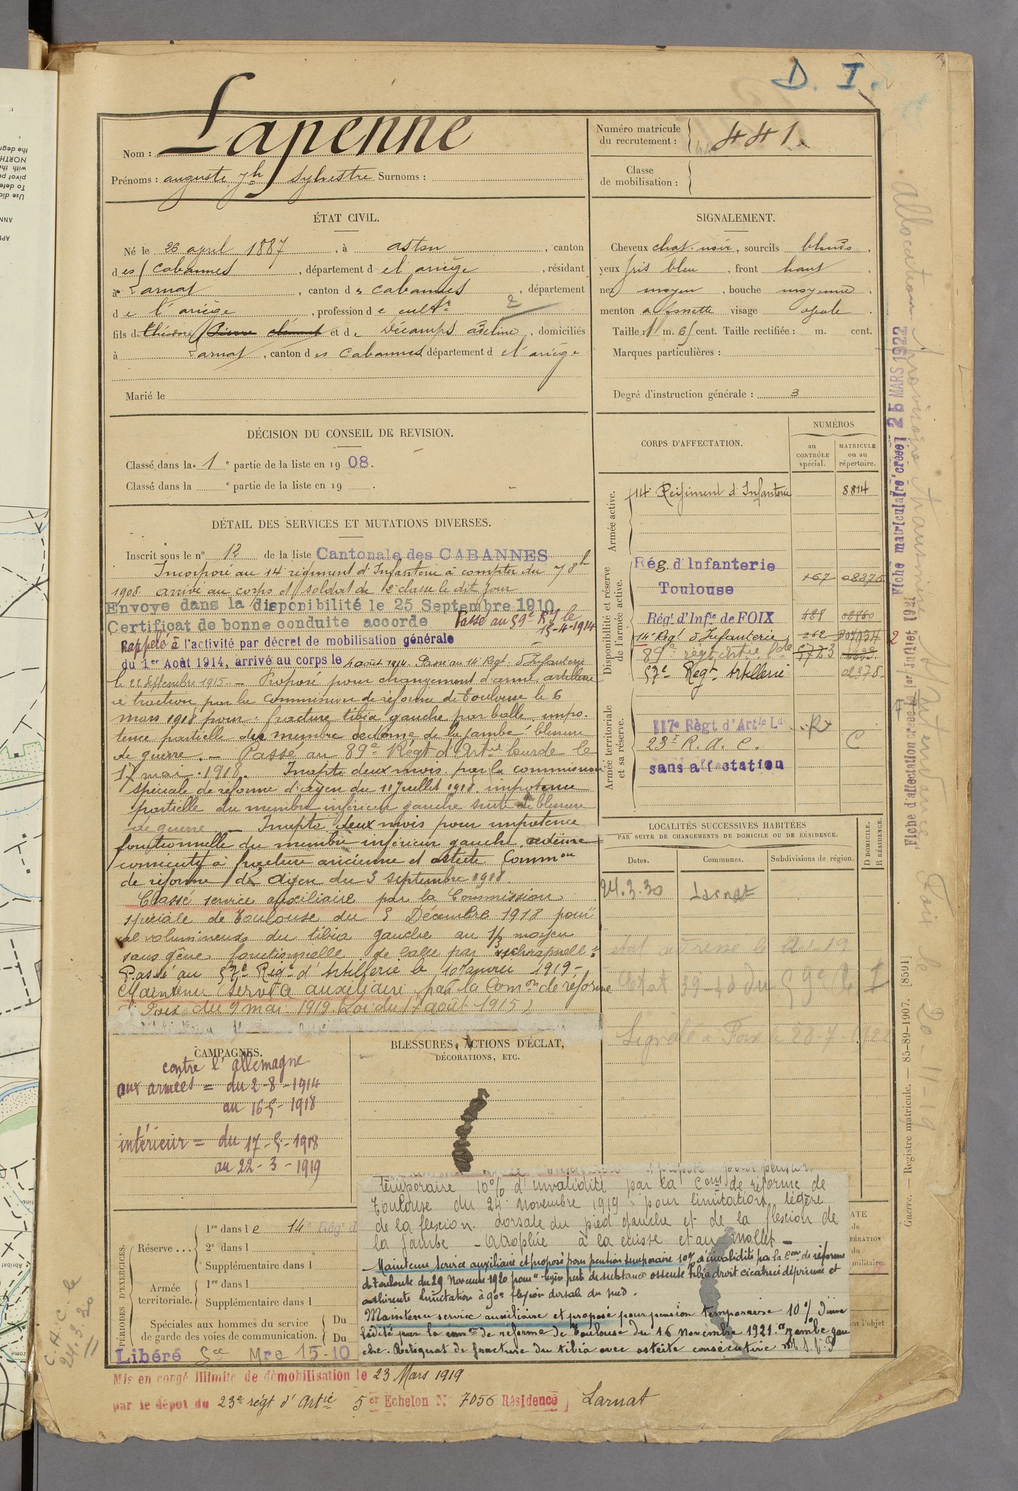 D. I.
Nom : Lapenne
Prénoms : auguste jh sylvestre Surnoms :
Numéro matricule du recrutement : 441.
Classe de mobilisation :
ÉTAT CIVIL.
Né le 26 april 1887, à aston, canton
des Cabannes, département de l'ariège, résidant
à Larnat, canton de Cabannes, département
de l'ariège, profession de cultr
fils de théodore Pierre clément et de Decamps adeline, domiciliés
à Larnat, canton des Cabannes département de l'ariège
Marié le
SIGNALEMENT.
Cheveux chat. noir, sourcils blonds,
yeux gris bleu, front haut
nez moyen, bouche moyenne,
menton à fossette visage ovale
Taille : 1 m. 65 cent. Taille rectifiée : m. cent.
Marques particulières :
Degré d'instruction générale : 3
DÉCISION DU CONSEIL DE REVISION.
Classé dans la 1e partie de la liste en 1908.
Classé dans la e partie de la liste en 19
CORPS D'AFFECTATION.
NUMÉROS
au CONTRÔLE spécial.
MATRICULE ou au répertoire.
Armée active.
14e Régiment d'Infanterie 8814
Disponibilité et réserve de l'armée active.
Rég. d'Infanterie Toulouse 167
Rég. d'Infie de FOIX
14e Régt d'Infanterie 262
89e régt Artie Lde
57e Regt Artillerie
Armée territoriale et sa réserve.
117e Règt d'Artie Lde
23e R. A. C. C
sans affectation
DÉTAIL DES SERVICES ET MUTATIONS DIVERSES.
Inscrit sous le n° 12 de la liste Cantonale des CABANNES
Incorporé au 14e régiment d'Infanterie à compter du 7 8bre
1908. arrivé au corps et soldat de 2e classe le dit jour
Envoyé dans la disponibilité le 25 Septembre 1910
Certificat de bonne conduite accordé Passé au 59e Rgt le 15-4-1914
Rappelé à l'activité par décret de mobilisation générale
du 1er Août 1914, arrivé au corps le 4 août 1914. Passé au 14 Régt d'Infanterie
le 22 septembre 1915. — Proposé pour changement d'arme, artillerie
à traction par la Commission de réforme de Toulouse le 6
mars 1918 pour : fracture tibia gauche par balle, impo-
tence partielle du membre œdème de la jambe blessure
de guerre. — Passé au 89e Régt d'Artie lourde le
17 mai 1918. Inapte deux mois par la commission
spéciale de réforme d'Agen du 11 juillet 1918. impotence
partielle du membre inférieur gauche suite de blessure
de guerre — Inapte deux mois pour impotence
fonctionnelle du membre inférieur gauche, œdème
consécutif à fracture ancienne et ostéite Common
de réforme d'Agen du 3 septembre 1918.
Classé service auxiliaire par la Commission
spéciale de Toulouse du 3 Décembre 1918 pour
cal volumineux du tibia gauche au 1/3 moyen
sans gêne fonctionnelle de balle par schrapnell :
Passé au 57e Régt d'Artillerie le 10 janvier 1919 —
Maintenu service auxiliaire par la Comon de réforme
Foix du 9 mai 1919. Loi du 17 août 1915)
LOCALITÉS SUCCESSIVES HABITÉES
PAR SUITE DE CHANGEMENTS DE DOMICILE OU DE RÉSIDENCE.
Dates. Communes. Subdivisions de région. D DOMICILE. R RÉSIDENCE.
24.3.30 Larnat
CAMPAGNES.
contre l'allemagne
aux armées = du 2-8-1914
au 16-5-1918
intérieur = du 17-5-1918
au 22-3-1919
BLESSURES, ACTIONS D'ÉCLAT,
DÉCORATIONS, ETC.
temporaire 10% d'invalidité par la Com de réforme de
Toulouse du 24 novembre 1919 pour limitation légère
de la flexion dorsale du pied gauche et de la flexion de
la jambe — Atrophie à la cuisse et au mollet —
Maintenu service auxiliaire et proposé pour pension temporaire 10% d'invalidité par la com de réforme
de Toulouse du 29 Novembre 1920 pour légère perte de substance osseuse tibia droit cicatrice déprimée et
adhérente limitation à 90° flexion dorsale du pied.
Maintenu service auxiliaire et proposé pour pension temporaire 10% d'inva-
lidité par la com de réforme de Toulouse du 16 novembre 1921. Jambe gau-
che. Reliquat de fracture du tibia avec ostéite consécutive
PÉRIODES D'EXERCICES.
Réserve ...
1re dans le 14e Rég d
2e dans l
Supplémentaire dans l
Armée territoriale.
1re dans l
Supplémentaire dans l
Spéciales aux hommes du service de garde des voies de communication.
Du
Du
Libéré Sce Mre 15-10
Mis en congé illimité de démobilisation le 23 Mars 1919
par le dépôt du 23e régt d'Artie 5er Echelon N° 7056 Résidence Larnat
Fiche matriculaire créée 25 MARS 1922
Guerre. — Registre matricule. — 85-89-1907. [8591]
C.A.C. le 24.3.30